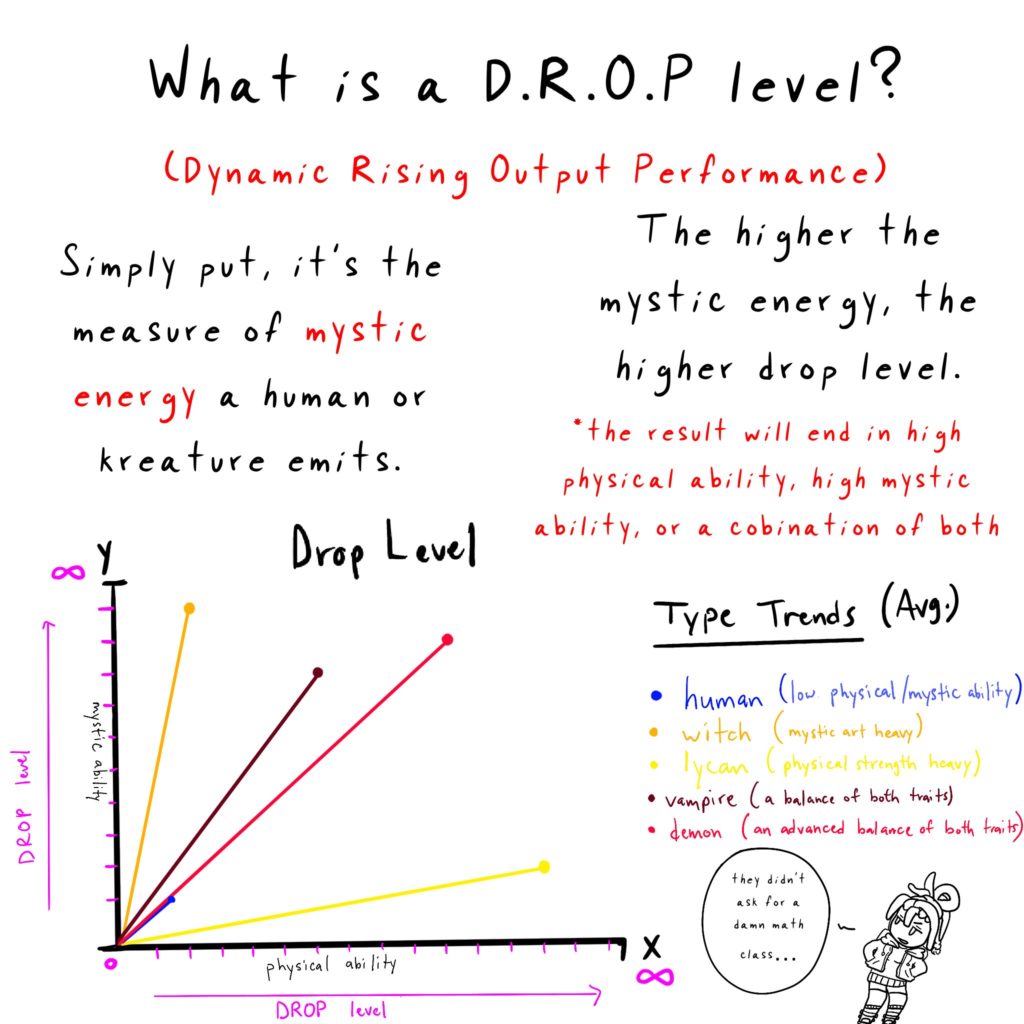 What is a D.R.O.P level?
(Dynamic Rising Output Performance)
Simply put, it's the
measure of mystic
energy a human or
kreature emits.
The higher the
mystic energy, the
higher drop level.
*the result will end in high
physical ability, high mystic
ability, or a cobination of both
Drop Level
∞
Y
mystic ability
DROP level
0
physical ability
X
∞
DROP level
Type Trends (Avg.)
• human (low physical/mystic ability)
• witch (mystic art heavy)
• lycan (physical strength heavy)
• vampire (a balance of both traits)
• demon (an advanced balance of both traits)
they didn't
ask for a
damn math
class...